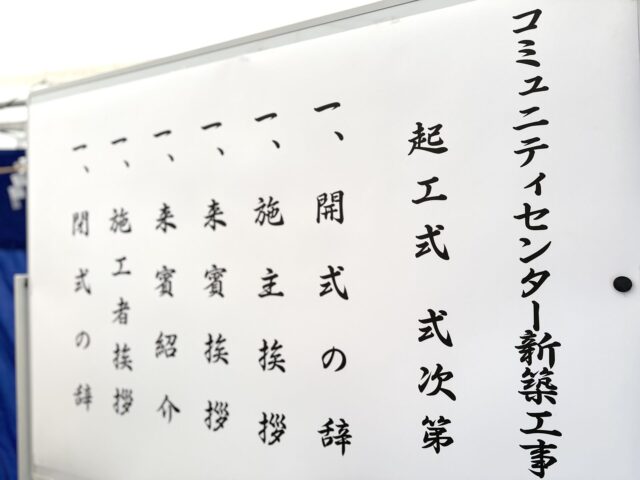 コミュニティセンター新築工事
起工式 式次第
一、開式の辞
一、施主挨拶
一、来賓挨拶
一、来賓紹介
一、施工者挨拶
一、閉式の辞